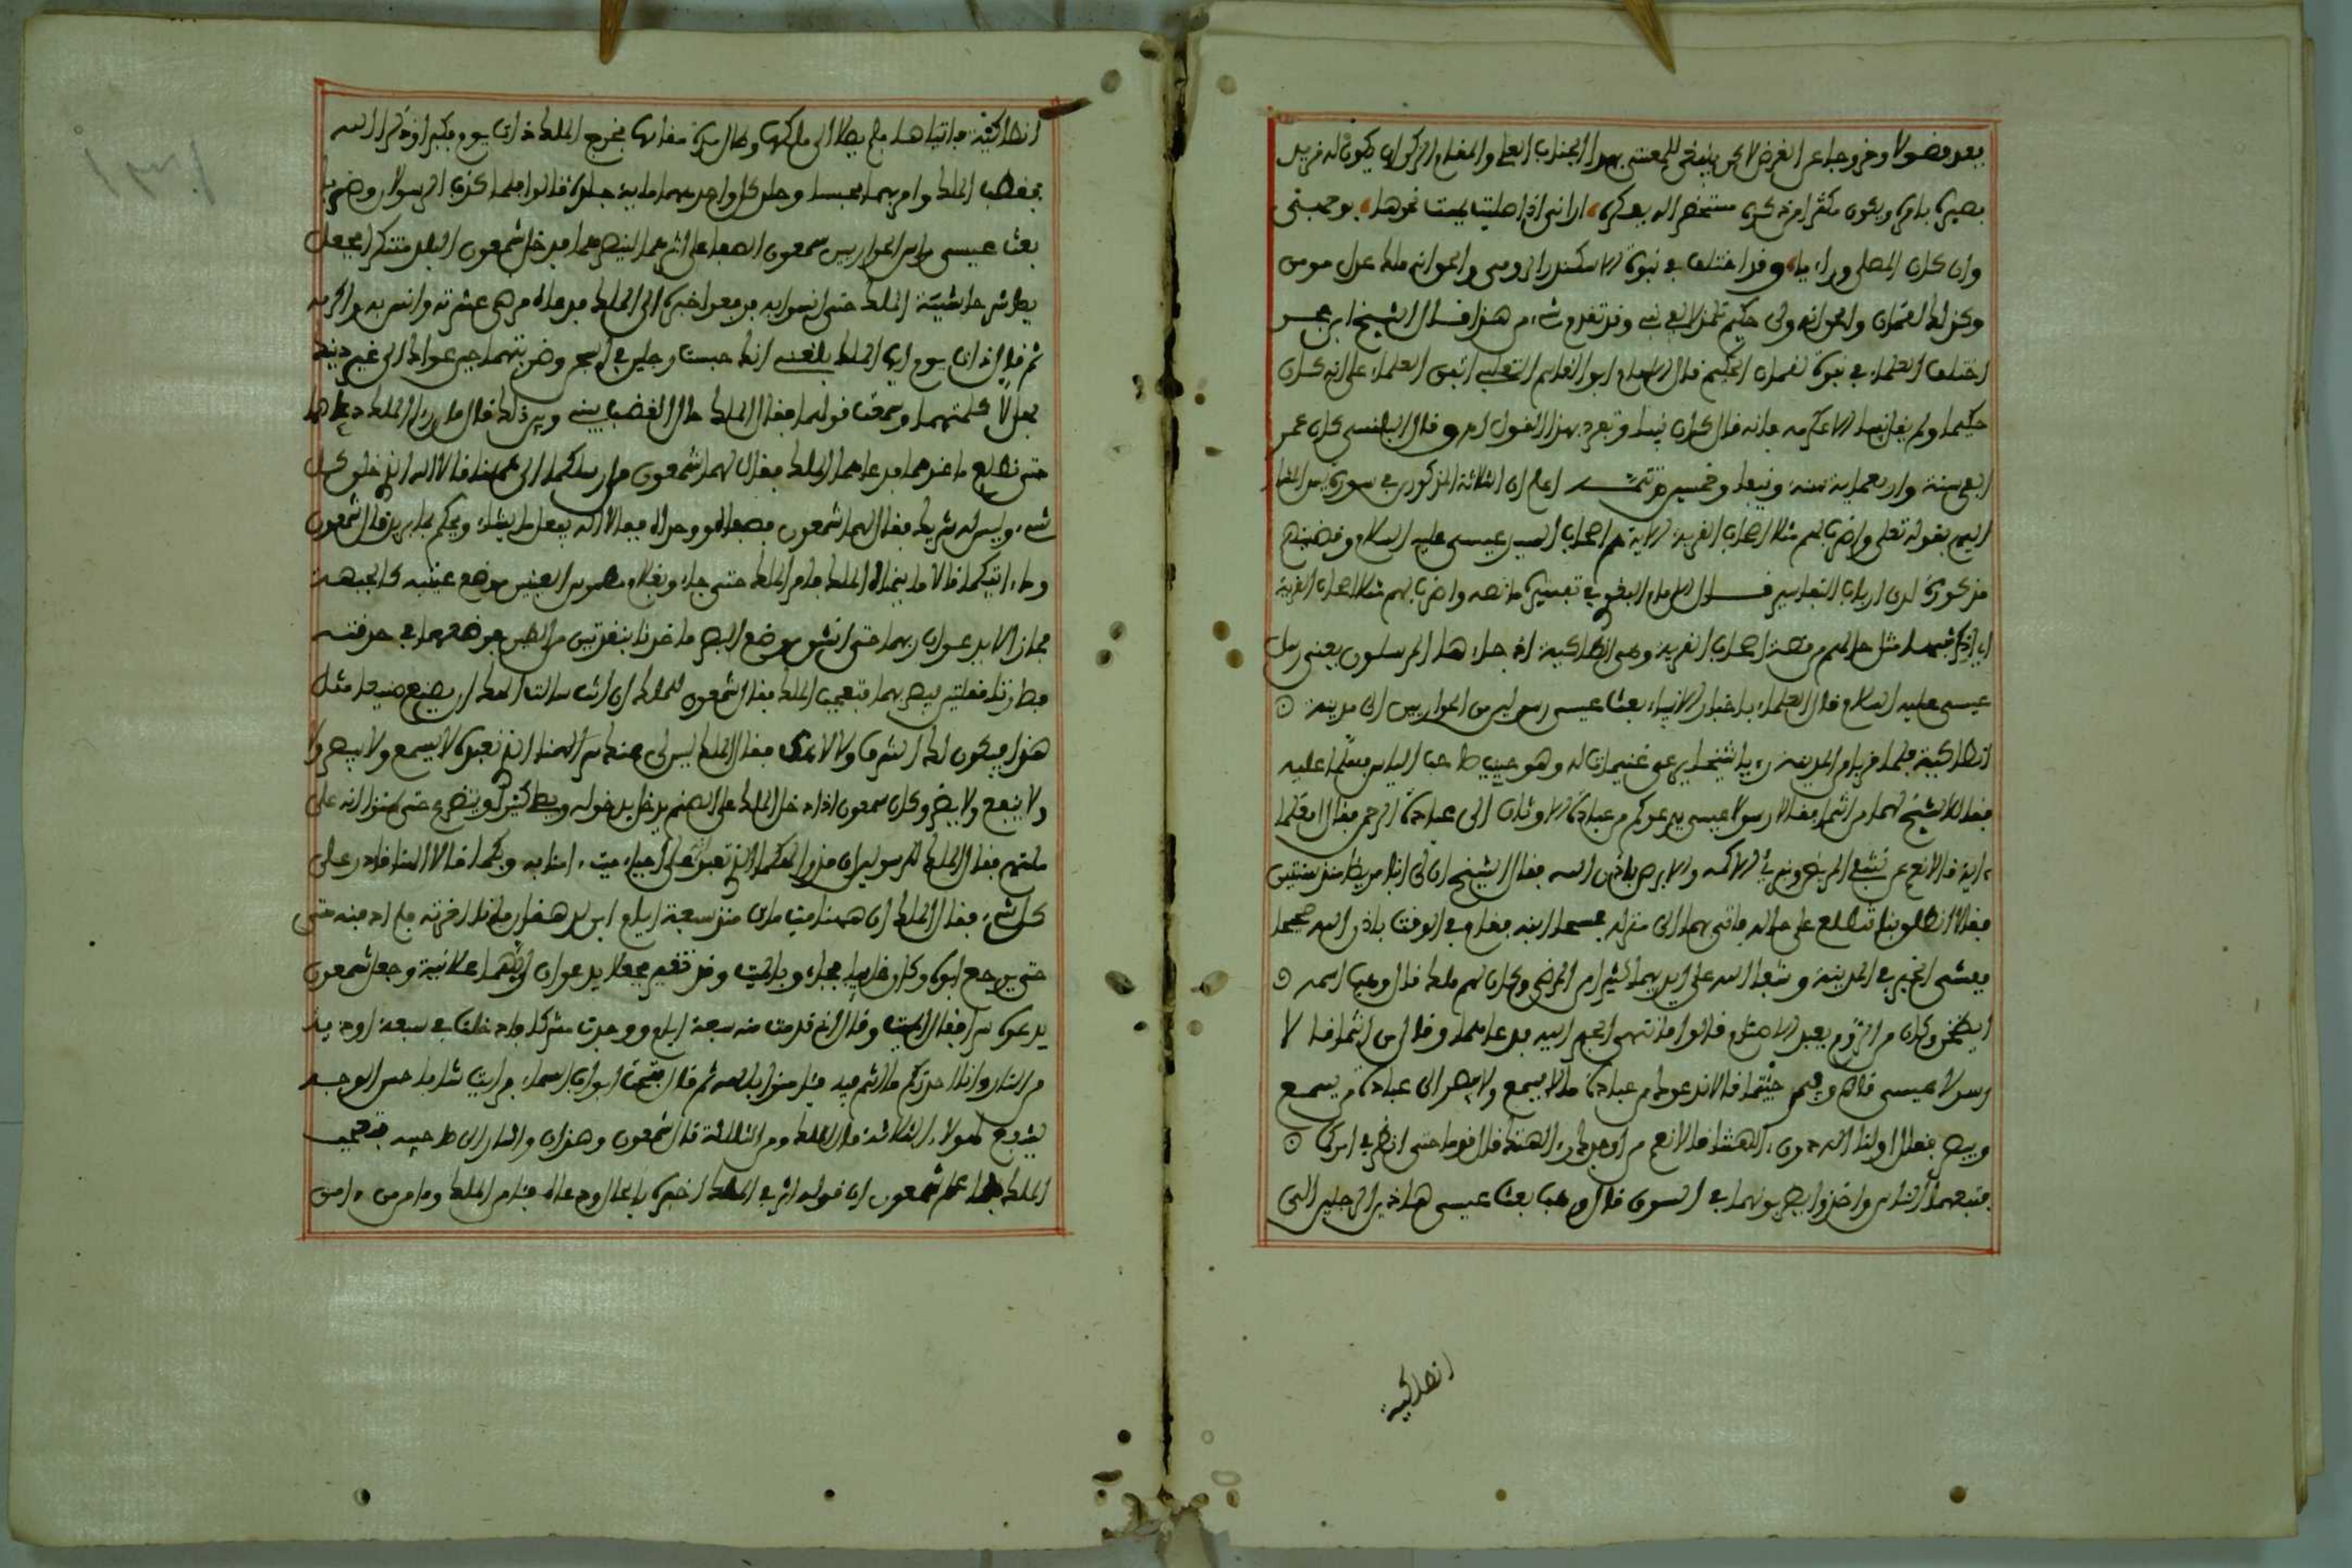 بعد فضولا وخروجا عن الغرض لاكن ينبغي للمعتني بهذا الجناب العلي والمقام ان يكون له مزيد
بصيرة بامره ويكون مكثرا من ذكره مستحضرا له بفكره اراني اذا صليت يممت نحوها بوجهي
وان كان المصلى ورائيا وقد اختلف في نبوة الاسكندر الرومي وانه ملك عدل مومن
وكذلك لقمان وانه ولي حكيم وقد تقدم شيء من هذا قال الشيخ ابن حجر
اختلف العلماء في نبوة لقمان الحكيم قال الامام ابو القاسم الثعلبي اتفق العلماء على انه كان
حكيما ولم يكن نبيا الا عكرمة فانه قال كان نبيا وتفرد بهذا القول اهـ وقال كان عمر
الف سنة واربعماية سنة ونيفا وخمسين تتمة اعلم ان الثلاثة المذكورين في سورة يس المشار
اليهم بقوله تعلى واضرب لهم مثلا اصحاب القرية الاية هم اصحاب السيد عيسى عليه السلام وقصتهم
مذكورة لدى ارباب التفاسير قال الامام البغوي في تفسيره ما نصه واضرب لهم مثلا اصحاب القرية
اي اذكر شبها مثل حالهم من قصة اصحاب القرية وهي انطاكية اذ جاءها المرسلون يعني رسل
عيسى عليه السلام قال العلماء باخبار الانبياء بعث عيسى رسولين من الحواريين الى مدينة
انطاكية فلما قربا من المدينة رءيا شيخا يرعى غنيمات له وهو حبيب صاحب ياس فسلما عليه
فقال الشيخ لهما من انتما فقالا رسولا عيسى يدعوكم من عبادة الاوثان الى عبادة الرحمن فقال امعكما
ءاية قالا نعم نحن نشفي المريض ونبرئ الاكمه والابرص باذن الله فقال الشيخ ان لي ابنا مريضا منذ سنتين
فقالا انطلق بنا نطلع على حاله فاتى بهما الى منزله فمسحا ابنه فقام في الوقت باذن الله صحيحا
ففشى الخبر في المدينة وشفا الله على ايديهما كثيرا من المرضى وكان لهم ملك قال وهب اسمه
انطيخس وكان من الروم يعبد الاصنام قالوا فانتهى الخبر اليه فدعاهما وقال من انتما قالا
رسولا عيسى قال وفيم جئتما قالا ندعوك من عبادة ما لا يسمع ولا يبصر الى عبادة من يسمع
ويبصر فقال اولنا اله دون ءالهتنا قالا نعم من اوجدك وءالهتك قال قوما حتى انظر في امركما
فتبعهما الناس واخذوا يضربونهما في السوق قال وهب بعث عيسى هاذين الرجلين الى
انطاكية
انطاكية فاتياها فلم يصلا الى ملكها وطال مدة مقامهما فخرج الملك ذات يوم فكبرا وذكرا الله
فغضب الملك وامر بهما فحبسا وجلد كل واحد منهما ماية جلدة قالوا فلما كذب الرسولان وضربا
بعث عيسى راس الحواريين سمعون الصفا على اثرهما لينصرهما فدخل شمعون البلد متنكرا فجعل
يعاشر حاشية الملك حتى انسوا به فرفعوا خبره الى الملك فدعاه فرضي عشرته وانس به واكرمه
ثم قال له ذات يوم ايها الملك بلغني انك حبست رجلين في السجن وضربتهما حين دعواك الى غير دينك
فهل لا كلمتهما وسمعت قولهما فقال الملك حال الغضب بيني وبين ذلك قال فان راى الملك دعاهما
حتى نطلع ما عندهما فدعاهما الملك فقال لهما شمعون من ارسلكما الى ههنا قالا الله الذي خلق كل
شيء وليس له شريك فقال لهما شمعون فصفاه واوجزا فقالا انه يفعل ما يشاء ويحكم ما يريد قال شمعون
وما ءايتكما قالا ما تتمناه فامر الملك حتى جاءو بغلام مطموس العينين موضع عينيه كالجبهة
فما زالا يدعوان ربهما حتى انشق موضع البصر فاخذا بندقتين من الطين فوضعهما في حدقتيه
فصارتا مقلتين يبصر بهما فتعجب الملك فقال شمعون للملك ان انت سالت الهك ان يصنع صنعا مثل
هذا فيكون لك الشرف ولالاهك فقال الملك ليس لي عنك سر الهنا الذي نعبده لا يسمع ولا يبصر ولا
ولا ينفع ولا يضر وكان سمعون اذا دخل الملك على الصنم يدخل بدخوله ويصلي كثيرا ويتضرع حتى ظنوا انه على
ملتهم فقال الملك للرسولين ان قدر الهكما الذي تعبدانه على احياء ميت ءامنا به وبكما قالا الهنا قادر على
كل شيء فقال الملك ان ههنا ميت مات منذ سبعة ايام ابن لدهقان وانا اخرته فلم ادفنه حتى
حتى يرجع ابوه وكان غايبا فجاءو بالميت وقد تغير فجعلا يدعوان ربهما علانية وجعل شمعون
يدعو سرا فقام الميت وقال اني قد مت منذ سبعة ايام ووجدت مشركا فادخلت في سبعة اودية
من النار وانا احذركم ما انتم فيه فامنوا بالله ثم قال فتحت ابواب السماء فرايت شابا حسن الوجه
يشفع لهولاء الثلاثة قال الملك ومن الثلاثة قال شمعون وهذان واشار الى صاحبيه فتعجب
الملك فلما علم شمعون ان قوله اثر في الملك اخبره بالحال ودعاه فامن الملك وءامن